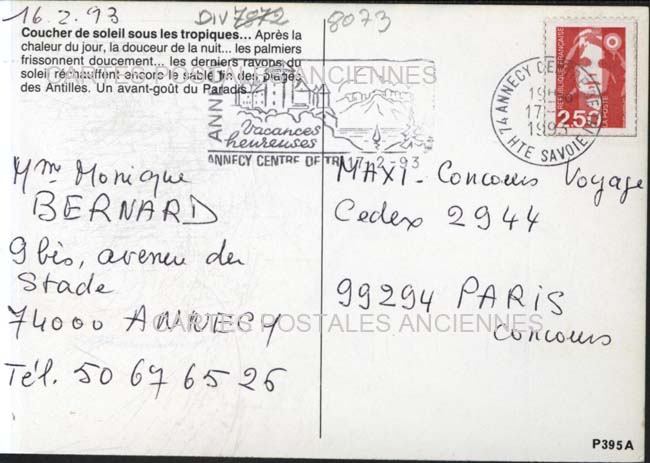 16.2.93
DIV 7872
8073
Coucher de soleil sous les tropiques... Après la
chaleur du jour, la douceur de la nuit... les palmiers
frissonnent doucement... les derniers rayons du
soleil réchauffent encore le sable fin des plages
des Antilles. Un avant-goût du Paradis.
CARTES POSTALES ANCIENNES
CARTES POSTALES ANCIENNES
Vacances
heureuses
ANNECY CENTRE DE TRI 17-2-93
74 ANNECY CENTRE DE TRI
17
1993
HTE SAVOIE
REPUBLIQUE FRANÇAISE
2,50
LA POSTE
Mme Monique
BERNARD
9 bis, avenue du
Stade
74000 ANNECY
Tél. 50 67 65 26
MAXI-Concours Voyage
Cedex 2944
99294 PARIS
Concours
CARTES POSTALES ANCIENNES
P395A